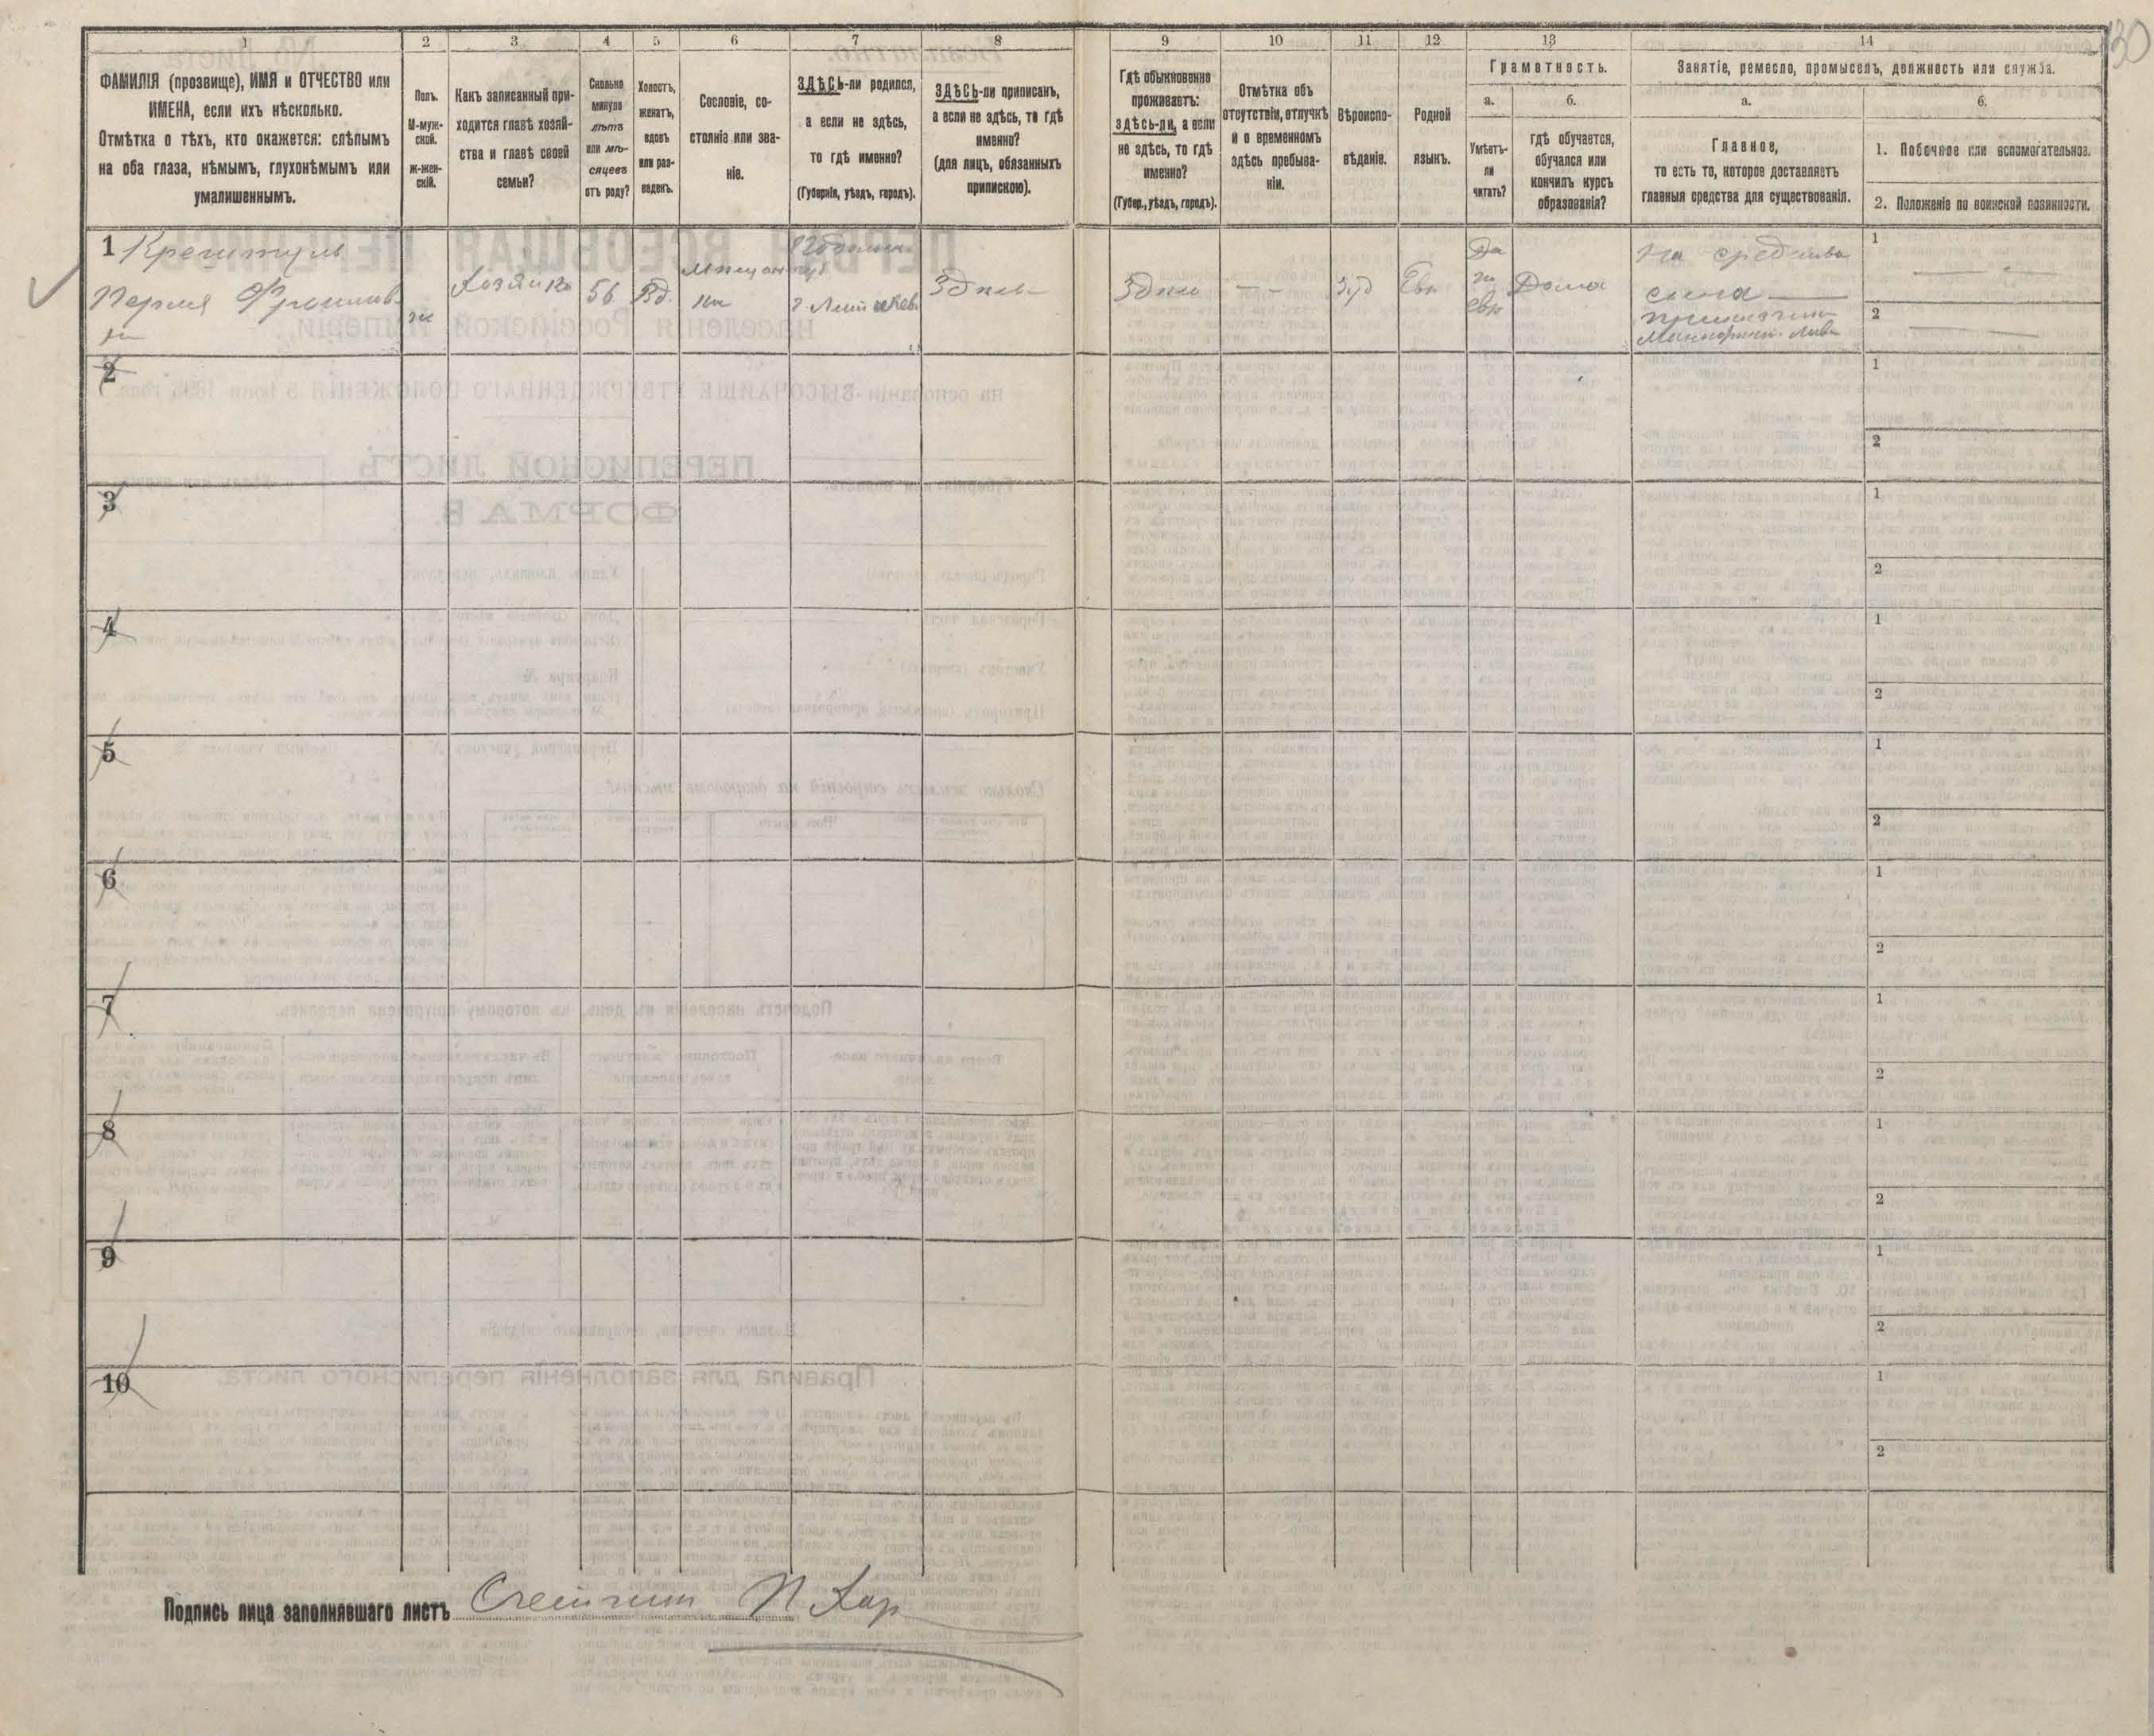 130
1 2 3 4 5 6 7 8 9 10 11 12 13 14
ФАМИЛІЯ (прозвище), ИМЯ и ОТЧЕСТВО или
ИМЕНА, если ихъ нѣсколько.
Отмѣтка о тѣхъ, кто окажется: слѣпымъ
на оба глаза, нѣмымъ, глухонѣмымъ или
умалишеннымъ.
Полъ.
М-муж-
ской.
ж-жен-
скій.
Какъ записанный при-
ходится главѣ хозяй-
ства и главѣ своей
семьи?
Сколько
минуло
лѣтъ
или мѣ-
сяцевъ
отъ роду?
Холостъ,
женатъ,
вдовъ
или раз-
веденъ.
Сословіе, со-
стояніе или зва-
ніе.
ЗДѢСЬ-ли родился,
а если не здѣсь,
то гдѣ именно?
(Губернія, уѣздъ, городъ).
ЗДѢСЬ-ли приписанъ,
а если не здѣсь, то гдѣ
именно?
(для лицъ, обязанныхъ
припискою).
Гдѣ обыкновенно
проживаетъ:
здѣсь-ли, а если
не здѣсь, то гдѣ
именно?
(Губер., уѣздъ, городъ).
Отмѣтка объ
отсутствіи, отлучкѣ
и о временномъ
здѣсь пребыва-
ніи.
Вѣроиспо-
вѣданіе.
Родной
языкъ.
Грамотность.
а.
Умѣетъ-
ли
читать?
б.
гдѣ обучается,
обучался или
кончилъ курсъ
образованія?
Занятіе, ремесло, промыселъ, должность или служба.
а.
Главное,
то есть то, которое доставляетъ
главныя средства для существованія.
б.
1. Побочное или вспомогательное.
2. Положеніе по воинской повинности.
1
Перля
ж
Хозяйка
56
Вд.
Здѣсь
Здѣсь
– –
Іуд
Евр
Да
по
евр
Дома
на средства
сына
1
2
2
1
2
3
1
2
4
1
2
5
1
2
6
1
2
7
1
2
8
1
2
9
1
2
10
1
2
Подпись лица заполнявшаго листъ Счетчик